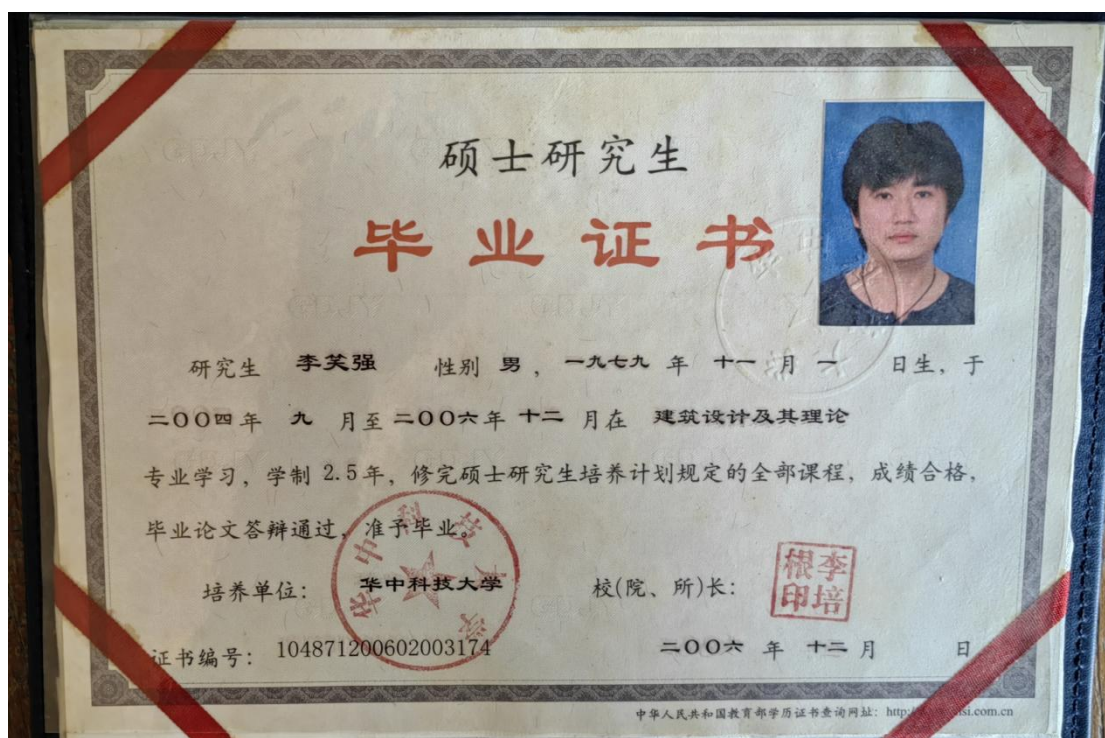 硕士研究生
毕业证书
研究生 李笑强 性别 男 , 一九七九 年 十一 月 一 日生, 于
二〇〇四年 九 月至 二〇〇六年 十二 月在 建筑设计及其理论
专业学习, 学制 2.5年, 修完硕士研究生培养计划规定的全部课程, 成绩合格,
毕业论文答辩通过, 准予毕业。
华中科技大学
培养单位: 华中科技大学 校(院、所)长: 李培根印
证书编号: 104871200602003174 二〇〇六 年 十二 月 日
中华人民共和国教育部学历证书查询网址: http:/
si.com.cn